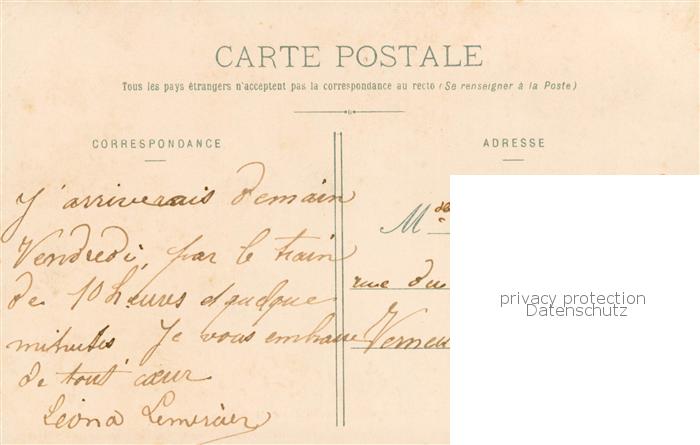 CARTE POSTALE
Tous les pays étrangers n'acceptent pas la correspondance au recto (Se renseigner à la Poste)
CORRESPONDANCE
J'arriverais demain
Vendredi, par le train
de 10 heures et quelque
minutes Je vous embrasse
de tout cœur
Léona Lemercier
ADRESSE
M
rue du
Verneu
privacy protection
Datenschutz